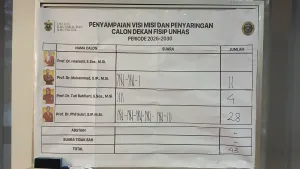 PENYAMPAIAN VISI MISI DAN PENYARINGAN
CALON DEKAN FISIP UNHAS
PERIODE 2026-2030
NAMA CALON SUARA JUMLAH
Prof. Dr. Hasniati, S.Sos., M.Si.
Prof. Dr. Muhammad, S.IP., M.Si. 11
Prof. Dr. Suti Rahmani, S.Sos., M.Si. 4
Prof. Dr. Phil Sukri, S.IP., M.Si. 28
ABSTAIN -
SUARA TIDAK SAH -
TOTAL 43